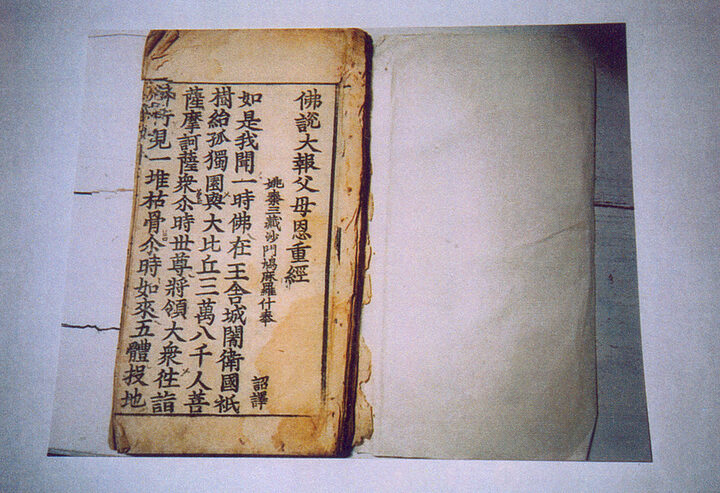 佛說大報父母恩重經
姚秦三藏沙門鳩麻羅什奉
詔譯
如是我聞一時佛在王舍城闍衛國祇
樹給孤獨園與大比丘三萬八千人菩
薩摩訶薩衆尒時世尊將領大衆徃詣
見一堆枯骨尒時如來五體投地